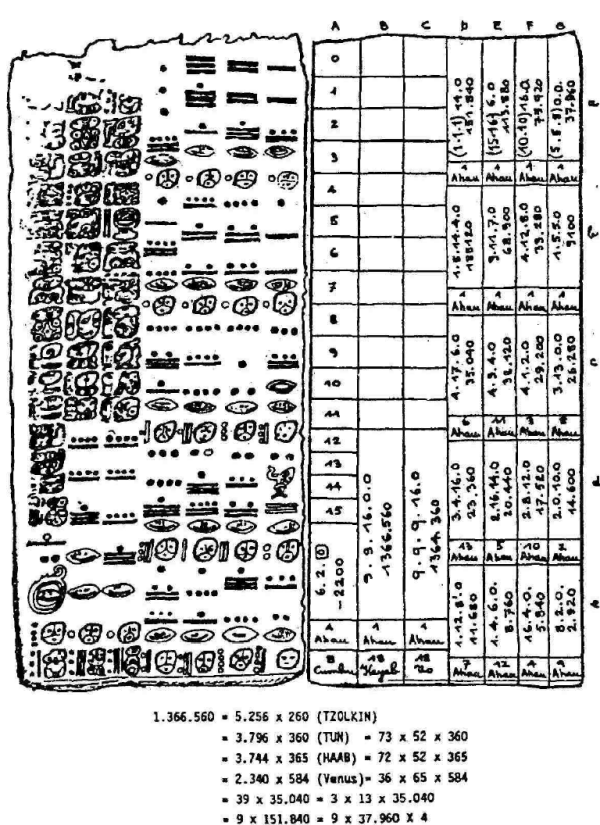 A B C D E F G
0
1
2
3
4
5
6
7
8
9
10
11
12
13
14
15
6.2.0
-2200
9.9.16.0.0
1366.560
9.9.9.16.0
1364.360
(1.1.1) 14.0
151.840
(15.16) 6.0
113.880
(10.10) 16.0
75.920
(5.5.8) 0.0.
37.960
1 1 1 1
Ahau Ahau Ahau Ahau
185120
9.11.7.0
68.900
4.12.8.0
33.280
1.5.5.0
9100
1 1 1 1
Ahau Ahau Ahau Ahau
4.17.6.0
35.040
4.9.4.0
32.120
4.1.2.0
29.200
3.13.0.0
26.280
6 11 3 8
Ahau Ahau Ahau Ahau
3.4.16.0
23.360
2.16.14.0
20.440
2.8.12.0
17.520
2.0.10.0
14.600
13 5 10 2
Ahau Ahau Ahau Ahau
1.12.8.0
11.680
1.4.6.0.
8.760
16.4.0.
5.840
8.2.0.
2.920
1 1 1
Ahau Ahau Ahau
8 18 18
Cumku Kayab Uo
7 12 4 9
Ahau Ahau Ahau Ahau
1.366.560 = 5.256 x 260 (TZOLKIN)
= 3.796 x 360 (TUN) = 73 x 52 x 360
= 3.744 x 365 (HAAB) = 72 x 52 x 365
= 2.340 x 584 (Venus)= 36 x 65 x 584
= 39 x 35.040 = 3 x 13 x 35.040
= 9 x 151.840 = 9 x 37.960 X 4